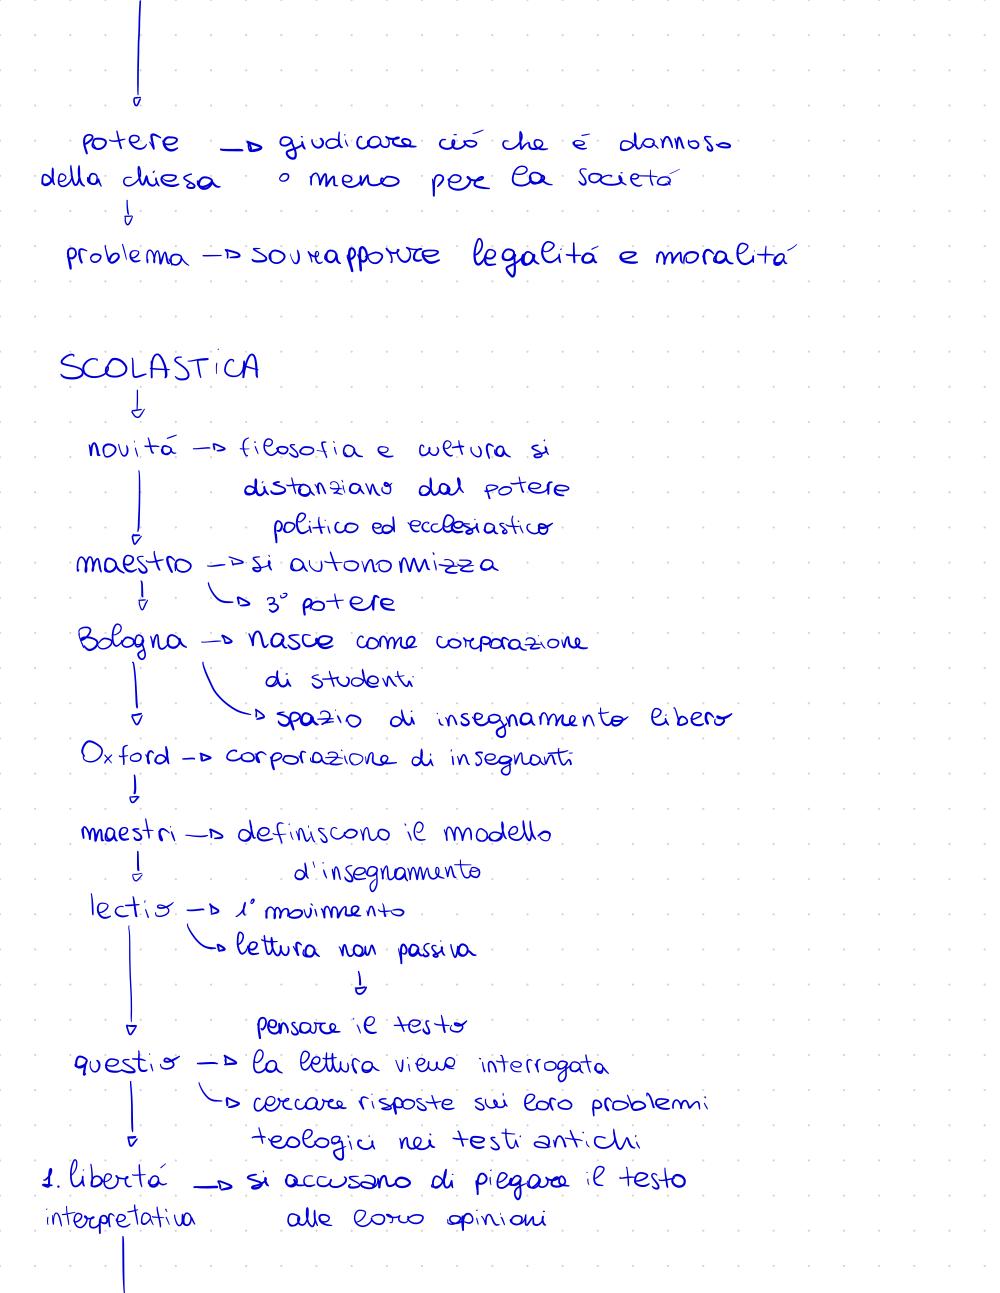 potere → giudicare ció che é dannoso
della chiesa o meno per la societá
problema → sovrapporre legalitá e moralitá
SCOLASTICA
novitá → filosofia e cultura si
distanziano dal potere
politico ed ecclesiastico
maestro → si autonomizza
3° potere
Bologna → nasce come corporazione
di studenti
spazio di insegnamento libero
Oxford → corporazione di insegnanti
maestri → definiscono il modello
d'insegnamento
lectio → 1° movimento
lettura non passiva
pensare il testo
questio → la lettura viene interrogata
cercare risposte sui loro problemi
teologici nei testi antichi
1. libertá → si accusano di piegare il testo
interpretativa alle loro opinioni